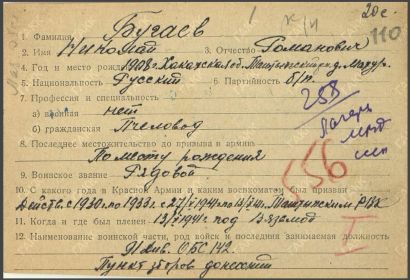 20с.
110
1. Фамилия Бугаев
2. Имя Николай 3. Отчество Романович
4. Год и место рожд. 1908 г. Хакасская об. Таштыпский р. д. Матур
5. Национальность Русский 6. Партийность б/п.
7. Профессия и специальность
а) военная нет
б) гражданская Пчеловод
258
Лагерь
8. Последнее местожительство до призыва в армию
По месту рождения
9. Воинское звание Рядовой
656
10. С какого года в Красной Армии и каким военкоматом был призван
Действ. с 1930 г. по 1933 г. с 1941 Таштыпским РВК
11. Когда и где был пленен 1941 г. под Вязьмой
I
12. Наименование воинской части, род войск и последняя занимаемая должность
91 див. ОБС 142
Пункт сборов донесений